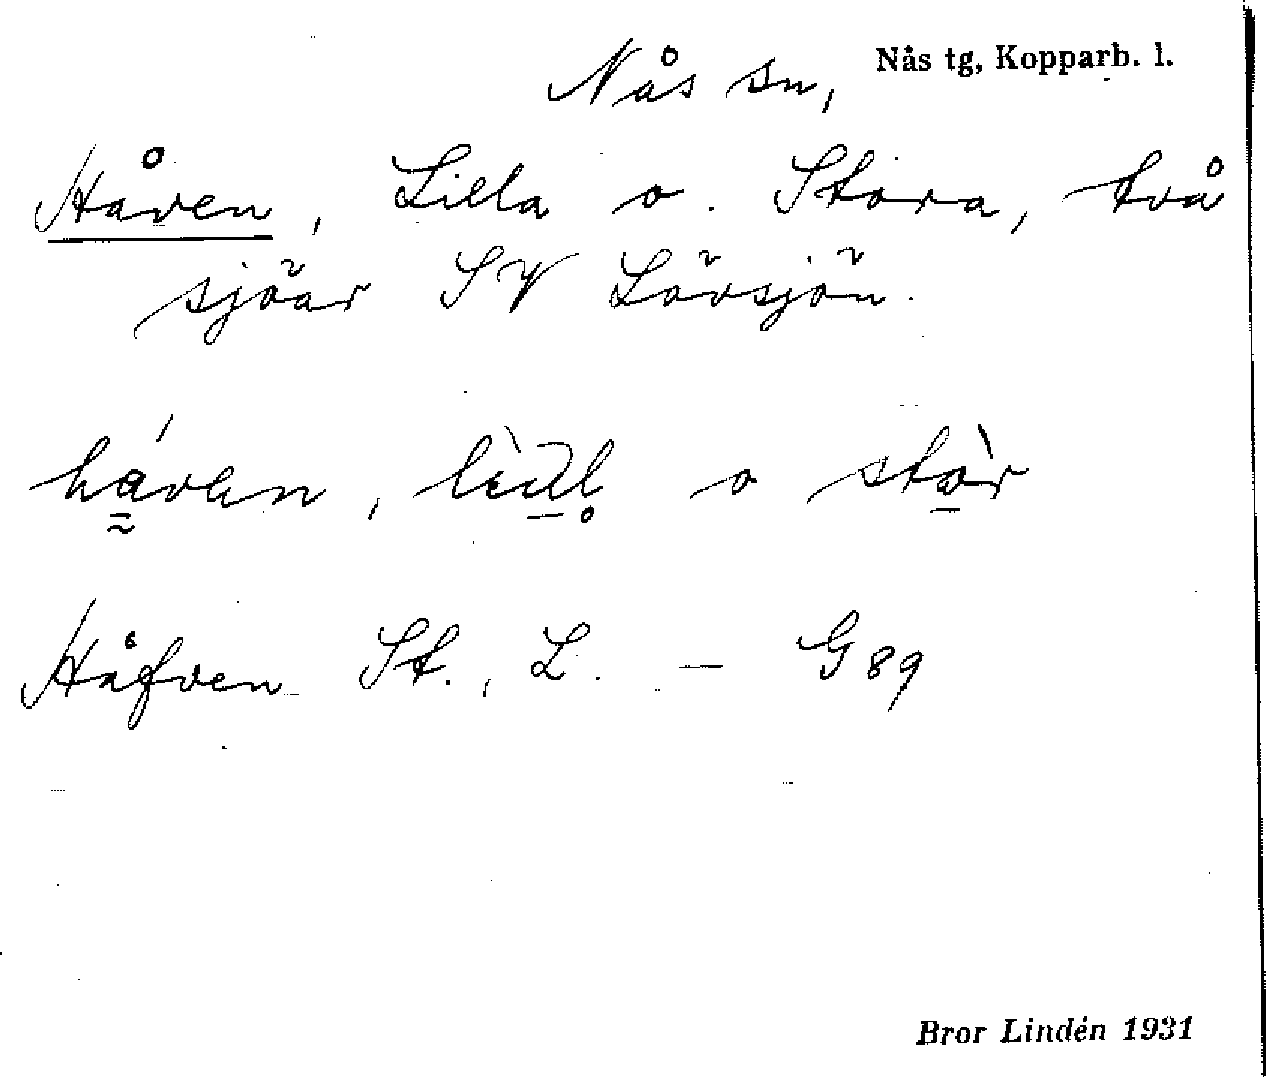 Nås sn, Nås tg, Kopparb. l.
Håven, Lilla o. Stora, två
sjöar SV Lövsjön.
o
Håfven St., L. — G 89
Bror Lindén 1931